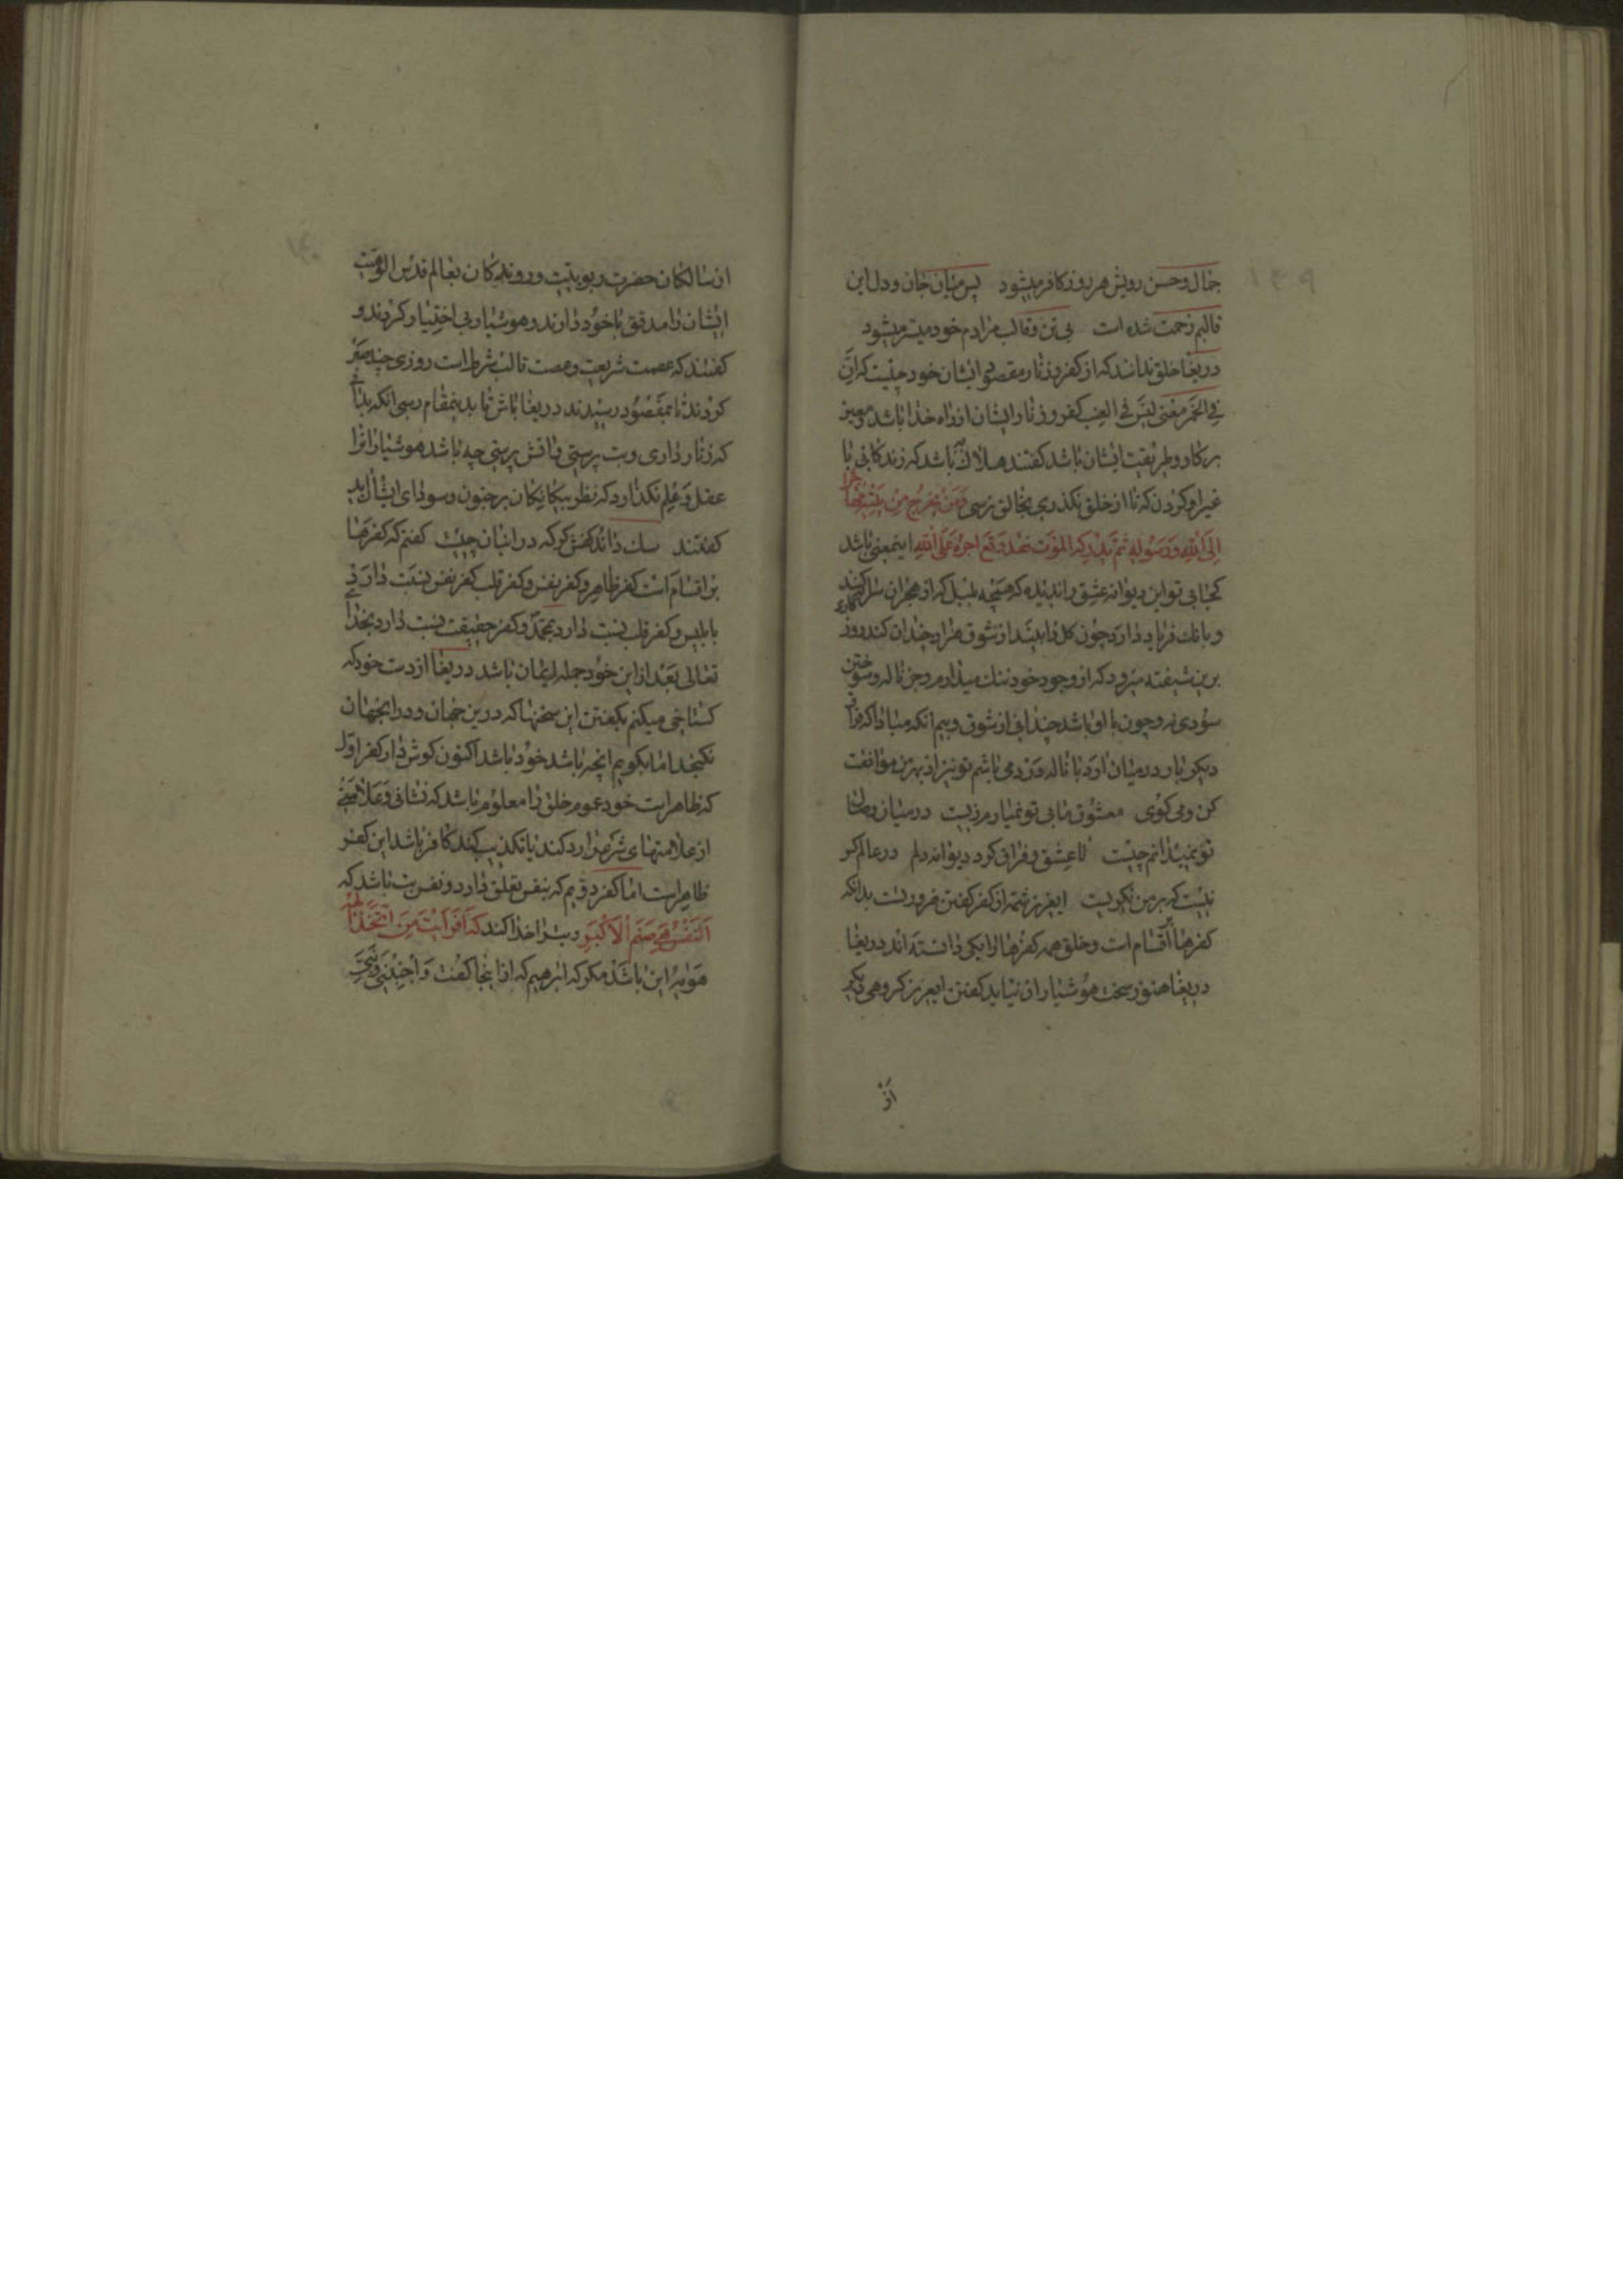 جمال وحسن رویش هر روز کافر میشود پس میان جان ودل این
قالبم زحمت شده است بی تن وقالب مرادم خود میسر میشود
دریغا خلق ندانند که از کفر وزنار مقصود ایشان خود چیست که ان
فی الخمر معنی لیس فی العنب کفر وزنار ایشان از راه خدا باشد ومعین
بر کار وطریقت ایشان باشد کفتند هلاک باشد که زندکانی با
غیر او کردن که تا از خلق نکذری بخالق نرسی وَمَنْ یَخرُج مِن بَیْتِهِ مُهاجرا
اِلَی اللهِ وَرَسُولِهِ ثُمَّ یُدْرِکهُ المَوْت فقد وَقع اجرهُ عَلَی اللهِ اینمعنی باشد
کجایی تو این دیوانه عشق را ندیده که همچه بلبل که از هجران سراید
وبانک فریاد دارد چون کل را بیند از شوق هزار چندان کند روز
برین شیفته میرود که از وجود خود ننک میدارم وجز ناله وسوختن
سودی نه وچون با او باشد چندانی از شوق وبیم انکه مبادا که فراق
دیکر بار در میان اورد با ناله ودرد می باشم تو نیز از بهر من موافقت
کن ومی کوی معشوق مایی تو نمیارم زیست در میان
تو نمیدانم چیست تا عشق وفراق کرد دیوانه دلم در عالم کو
نیست که بر من نکریست ایعزیز شمه از کفر کفتن ضروریست بدانکه
کفرها اقسام است وخلق همه کفرها را یکی دانسته اند دریغا
دریغا هنوز سخت هوشیار ان نیاید کفتن ایعزیز کروهی دیکر
از
از سالکان حضرت ربوبیت وروندکان بعالم قدس الوهیت
ایشان را مدقق با خود دارند وهوشیار وبی اختیار کردند و
کفتند که عصمت شریعت وعصمت قالب شرط است روزی چند صبر
کردند تا بمقصود رسیدند دریغا باش تا بدینمقام رسی انکه بدانی
که زنار داری وبت پرستی واتش پرستی چه باشد هوشیار انرا
عقل وعلم نکذارد که نظر بیکانکان بر جنون وسودای ایشان اید
کفتند در انبان چیست کفتم که کفرها
بر اقسام است کفر ظاهر وکفر نفس وکفر قلب کفر نفس نسبت دارد
بابلیس وکفر قلب نسبت دارد بمحمد وکفر حقیقت نسبت دارد بخدای
تعالی بعد از این خود جمله ایمان باشد دریغا از دست خود که
کستاخی میکنم بکفتن این سخنها که درین جهان ودر انجهان
نکنجد اما بکویم انچه باشد خود باشد اکنون کوش دار کفر اول
که ظاهر است خود عموم خلق را معلوم باشد که نشانی وعلامتی
از علامتهای شرع را رد کند یا تکذیب کند کافر باشد این کفر
ظاهر است اما کفر دویم که بنفس تعلق دارد ونفس بت باشد که
اَلنَفْسُ هِیَ صَنَم الاَکْبَر وبت را خدا کند که اَفَرَاَیْتَ مَنِ اتَّخَذَ الهه
هَوَاهُ این باشد مکر که ابرهیم که ازانجا کفت وَاجْنُبْنِی وَبَنِیَّ